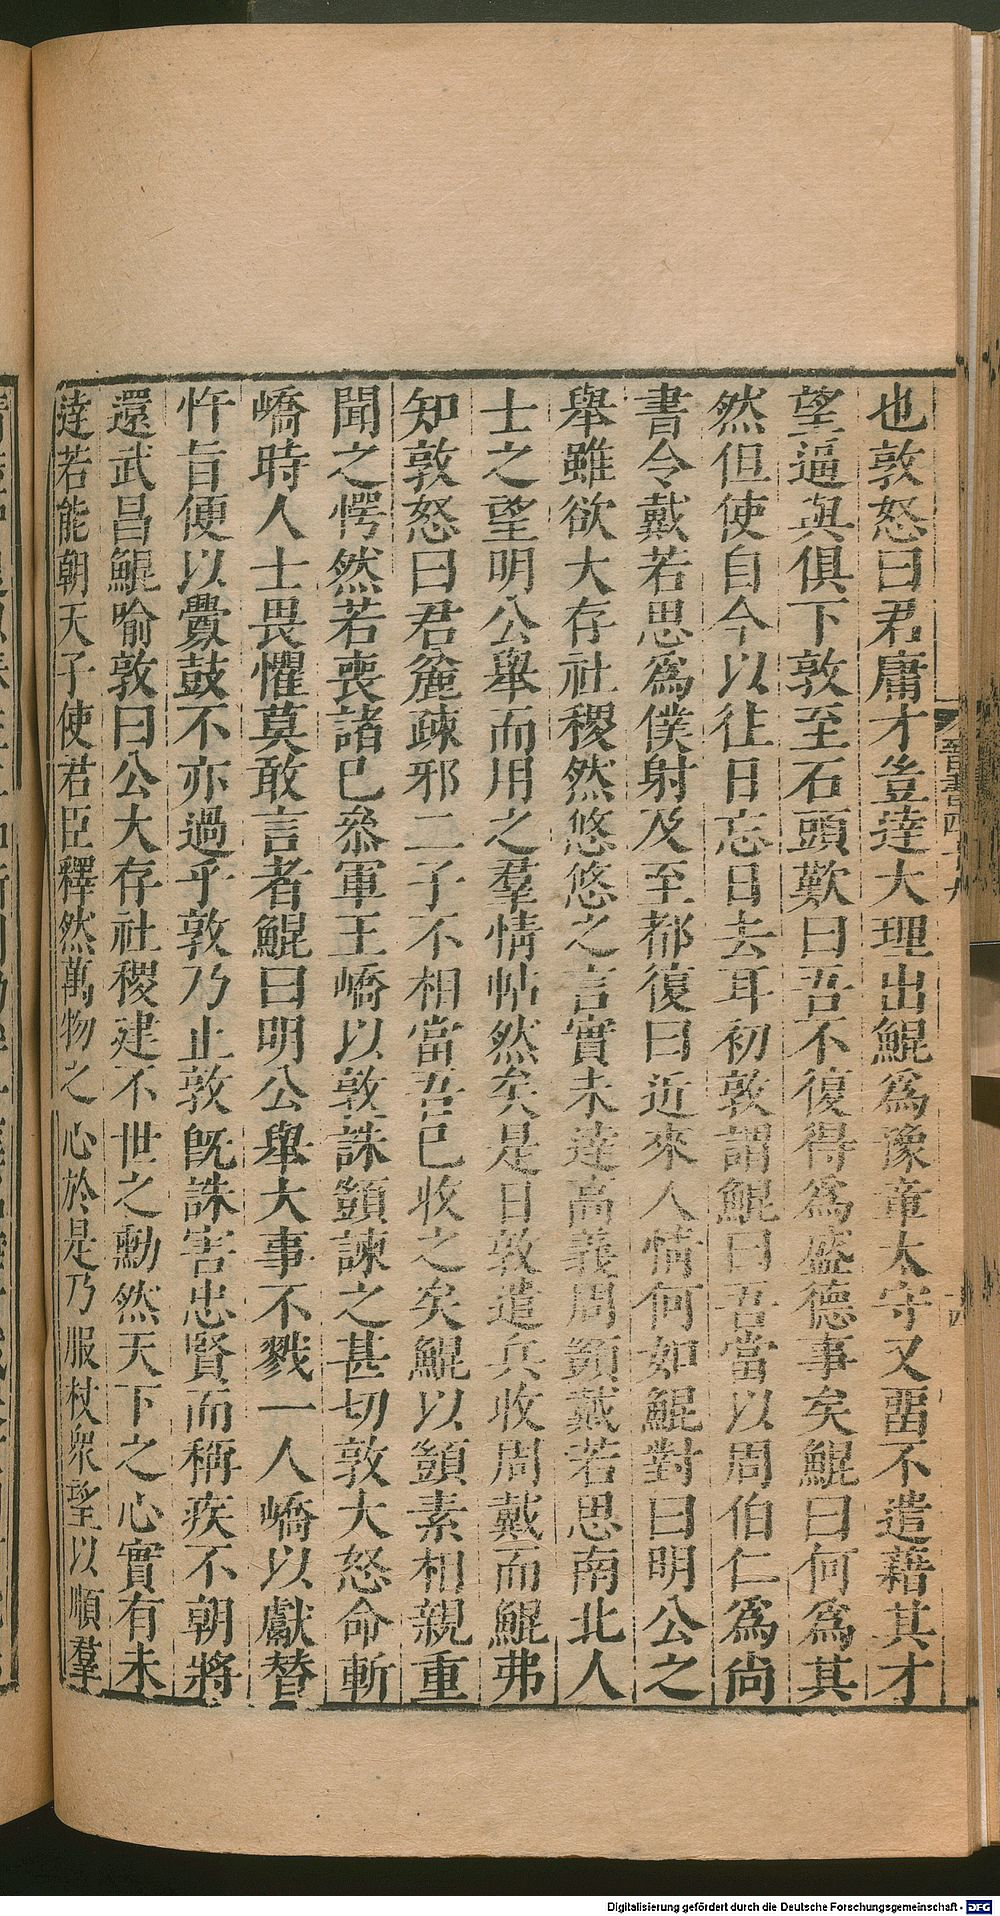 也敦怒曰君庸才豈達大理出鯤爲豫章太守又畱不遣藉其才
望逼與俱下敦至石頭歎曰吾不復得爲盛德事矣鯤曰何爲其
然但使自今以往日忘日去耳初敦謂鯤曰吾當以周伯仁爲尚
書令戴若思爲僕射及至都復曰近來人情何如鯤對曰明公之
舉雖欲大存社稷然悠悠之言實未達高義周顗戴若思南北人
士之望明公舉而用之羣情帖然矣是日敦遣兵收周戴而鯤弗
知敦怒曰君麄疎邪二子不相當吾已收之矣鯤以顗素相親重
聞之愕然若喪諸己叅軍王嶠以敦誅顗諫之甚切敦大怒命斬
嶠時人士畏懼莫敢言者鯤曰明公舉大事不戮一人嶠以獻替
忤旨便以釁鼓不亦過乎敦乃止敦旣誅害忠賢而稱疾不朝將
還武昌鯤喻敦曰公大存社稷建不世之勳然天下之心實有未
達若能朝天子使君臣釋然萬物之心於是乃服杖衆望以順羣
晉書四十九
十四
Digitalisierung gefördert durch die Deutsche Forschungsgemeinschaft - DFG